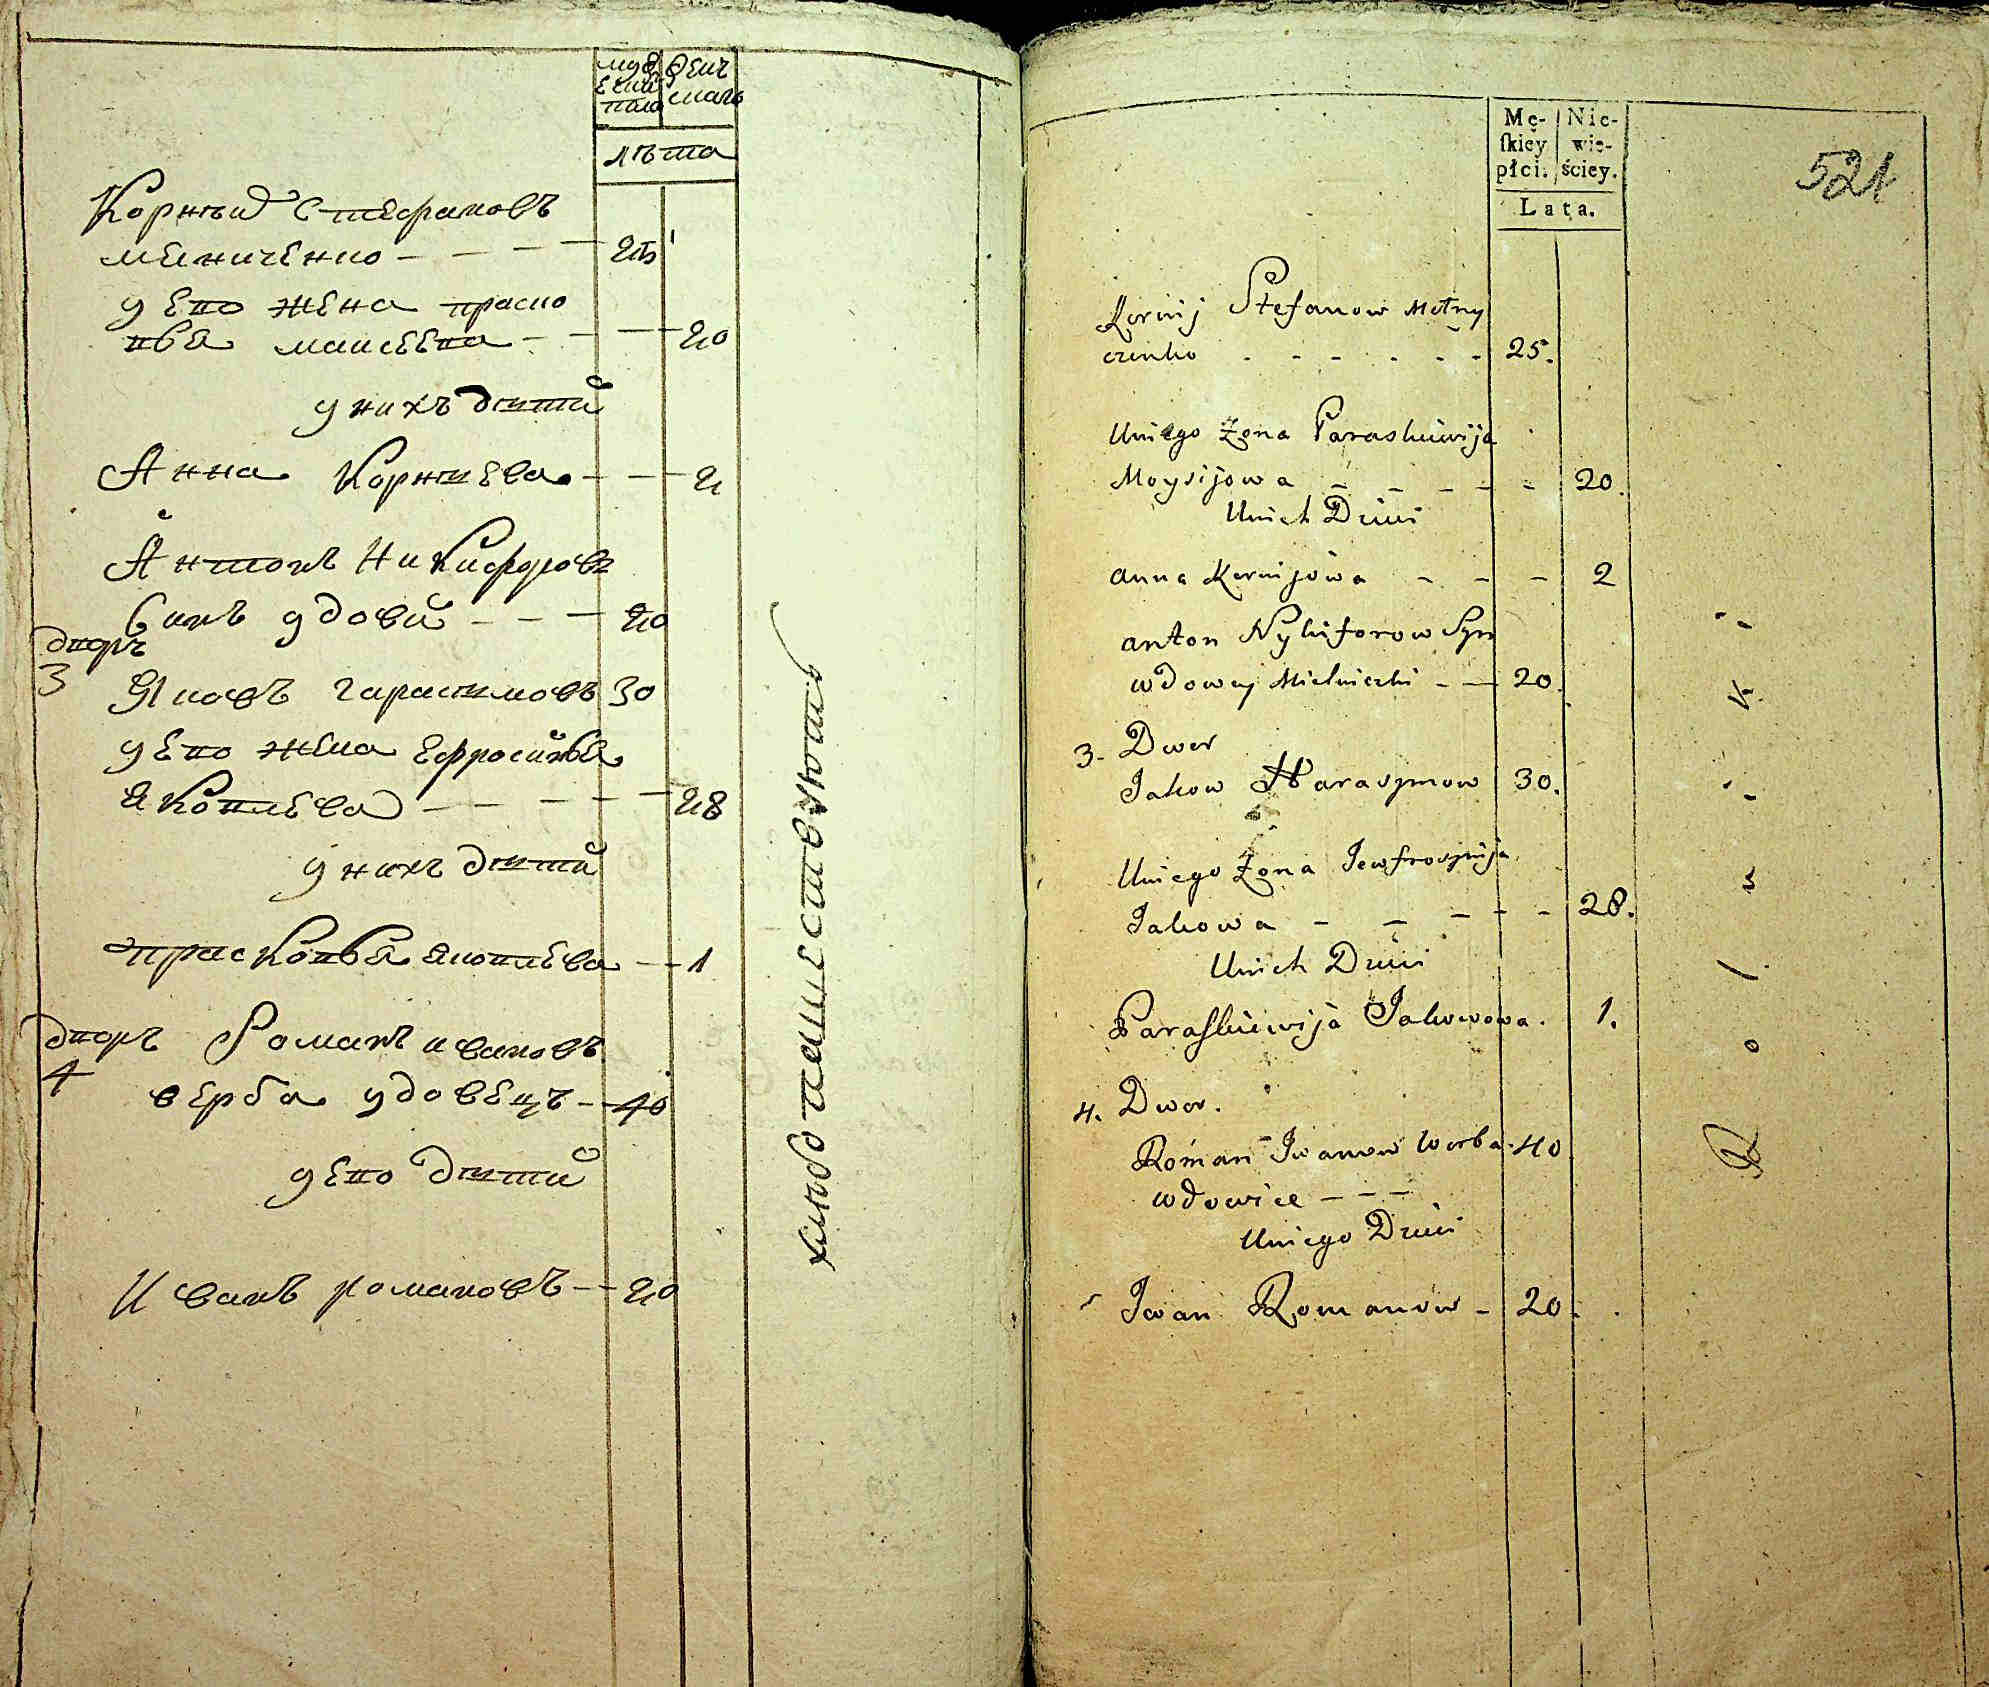 лѣта
Корнѣй Стефановъ
мелниченко - - - 25
у его жена праско
вья моисеева - - - 20
у нихъ дѣтй
Анна Корнѣева - - 2
Антонъ Никифоровъ
Синъ удовй - - - 20
дворъ
3
Яковъ гарасимовъ 30
у его жена Ефросинья
Яковлева - - - - 28
у нихъ дѣтй
прасковья яковлева - 1
дворъ
4
Романъ ивановъ
верба удовецъ - 40
у его дѣтй
Иванъ романовъ - 20
хлѣбопашествуютъ
Mę-
ſkiey
płci.
Nie-
wie-
ściey.
Lata.
521
Kornij Stefanow Melny
czenko - - - - - - 25.
Uniego Żona Paraskiewija
Moysijowa - - - - - 20.
Unich Dzieci
Anna Kornijowa - - - 2
Anton Nykiforow Syn
wdowey Mielniczki - - 20.
3. Dwor
Jakow Harasymow 30.
Uniego Żona Jewfrosynija
Jakowa - - - - - 28.
Unich Dzieci
Paraſkiewija Jakowowa. 1.
4. Dwor.
Roman Iwanow Werba. 40
wdowiec - - -
Uniego Dzieci
Iwan Romanow - 20.